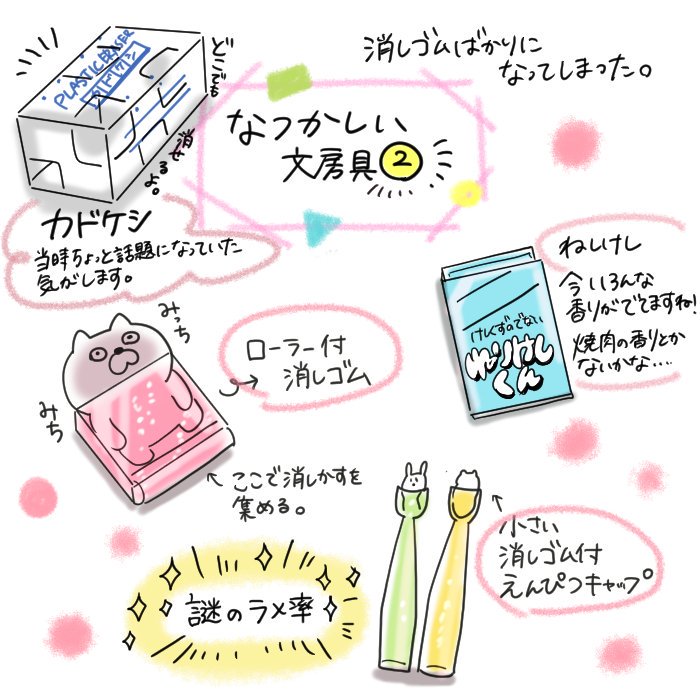 消しゴムばかりに
なってしまった。
なつかしい
文房具②
PLASTIC ERASER
カドケシ
どこでも
消せ
るよ。
カドケシ
当時ちょっと話題になっていた
気がします。
ねしけし
今いろんな
香りがでてますね!
焼肉の香りとか
ないかな....
けしくずのでない
ねりけし
くん
みっち
みち
ローラー付
消しゴム
ここで消しかすを
集める。
小さい
消しゴム付
えんぴつキャップ
謎のラメ率